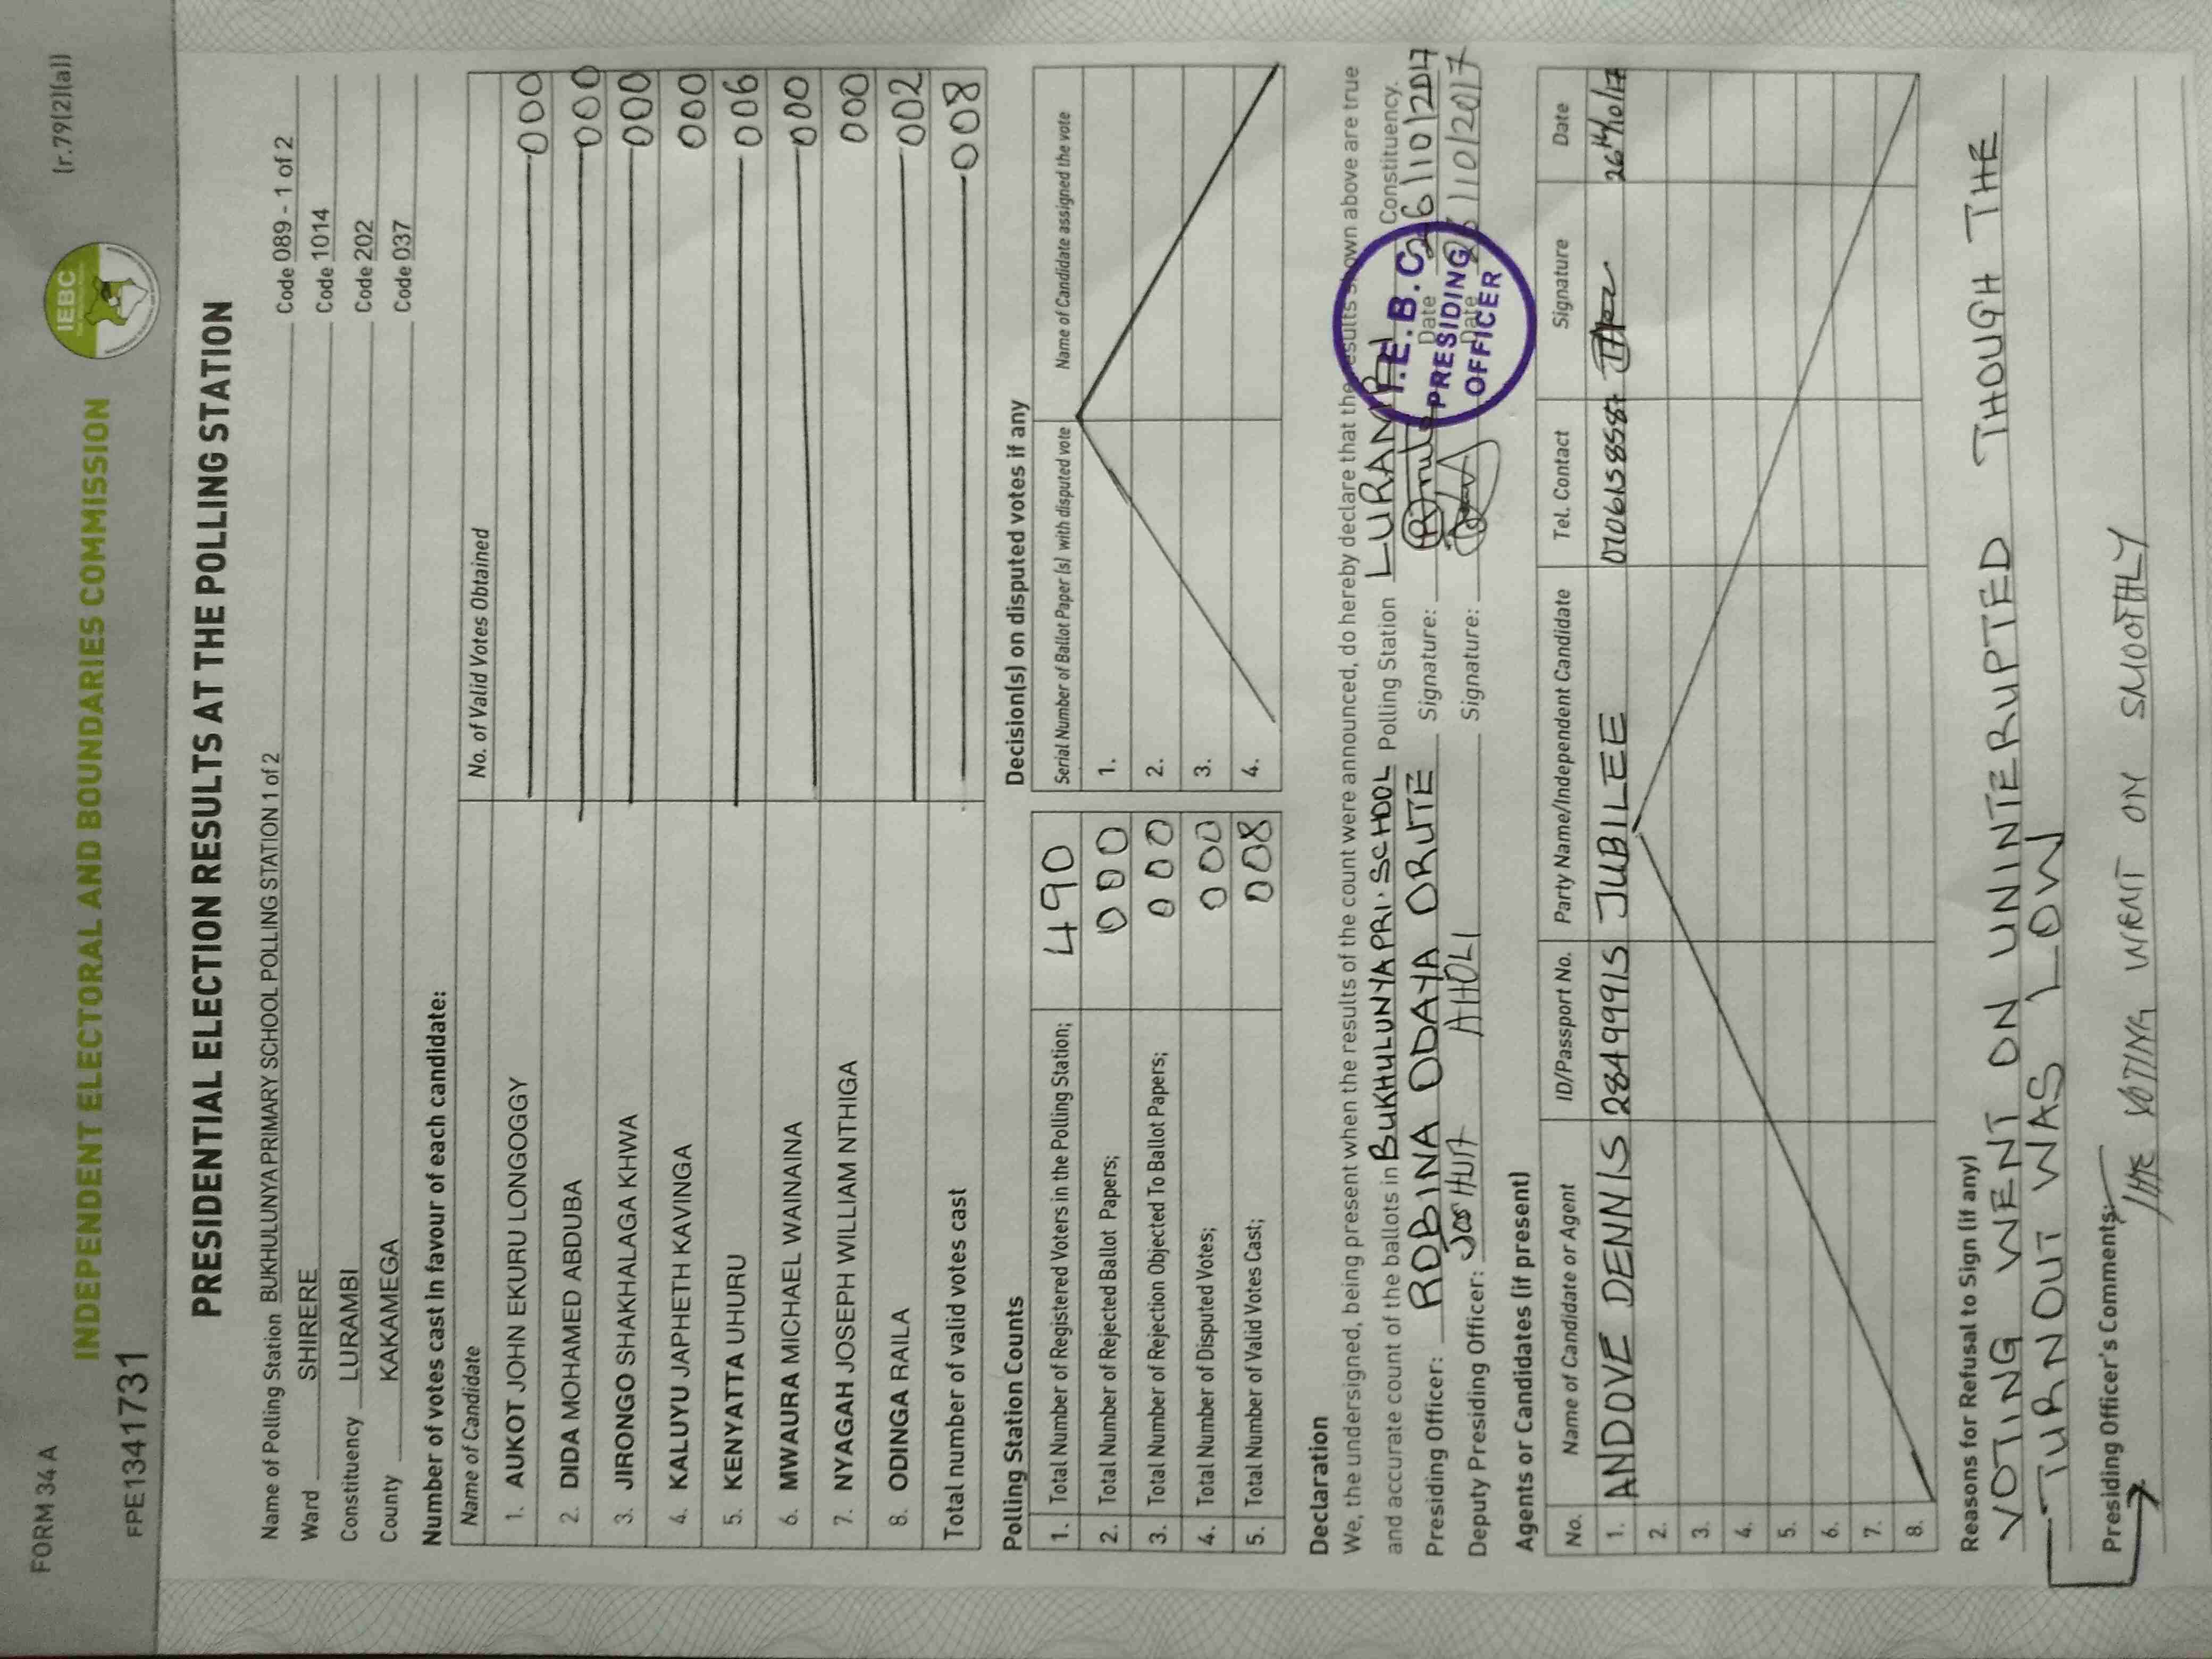 FORM 34 A
(r.79(2)(a))
IEBC
INDEPENDENT ELECTORAL AND BOUNDARIES COMMISSION
FPE1341731
PRESIDENTIAL ELECTION RESULTS AT THE POLLING STATION
Name of Polling Station BUKHULUNYA PRIMARY SCHOOL POLLING STATION 1 of 2 Code 089 - 1 of 2
Ward SHIRERE Code 1014
Constituency LURAMBI Code 202
County KAKAMEGA Code 037
Number of votes cast in favour of each candidate:
Name of Candidate No. of Valid Votes Obtained
1. AUKOT JOHN EKURU LONGOGGY 000
2. DIDA MOHAMED ABDUBA 000
3. JIRONGO SHAKHALAGA KHWA 000
4. KALUYU JAPHETH KAVINGA 000
5. KENYATTA UHURU 006
6. MWAURA MICHAEL WAINAINA 000
7. NYAGAH JOSEPH WILLIAM NTHIGA 000
8. ODINGA RAILA 002
Total number of valid votes cast 008
Polling Station Counts
1. Total Number of Registered Voters in the Polling Station; 490
2. Total Number of Rejected Ballot Papers; 000
3. Total Number of Rejection Objected To Ballot Papers; 000
4. Total Number of Disputed Votes; 000
5. Total Number of Valid Votes Cast; 008
Decision(s) on disputed votes if any
Serial Number of Ballot Paper (s) with disputed vote Name of Candidate assigned the vote
1.
2.
3.
4.
Declaration
We, the undersigned, being present when the results of the count were announced, do hereby declare that the results shown above are true
and accurate count of the ballots in BUKHULUNYA PRI. SCHOOL Polling Station LURAMBI Constituency.
Presiding Officer: ROBINA ODAYA ORUTE Signature: Date 26/10/2017
Deputy Presiding Officer: JOSHUA AHOLI Signature: Date 26/10/2017
I.E.B.C.
PRESIDING
OFFICER
Agents or Candidates (if present)
No. Name of Candidate or Agent ID/Passport No. Party Name/Independent Candidate Tel. Contact Signature Date
1. ANDOVE DENNIS 28499915 JUBILEE 0706158587 26th/10/17
2.
3.
4.
5.
6.
7.
8.
Reasons for Refusal to Sign (if any)
VOTING WENT ON UNINTERUPTED THOUGH THE
TURNOUT WAS LOW
Presiding Officer's Comments:
THE VOTING WENT ON SMOOTHLY